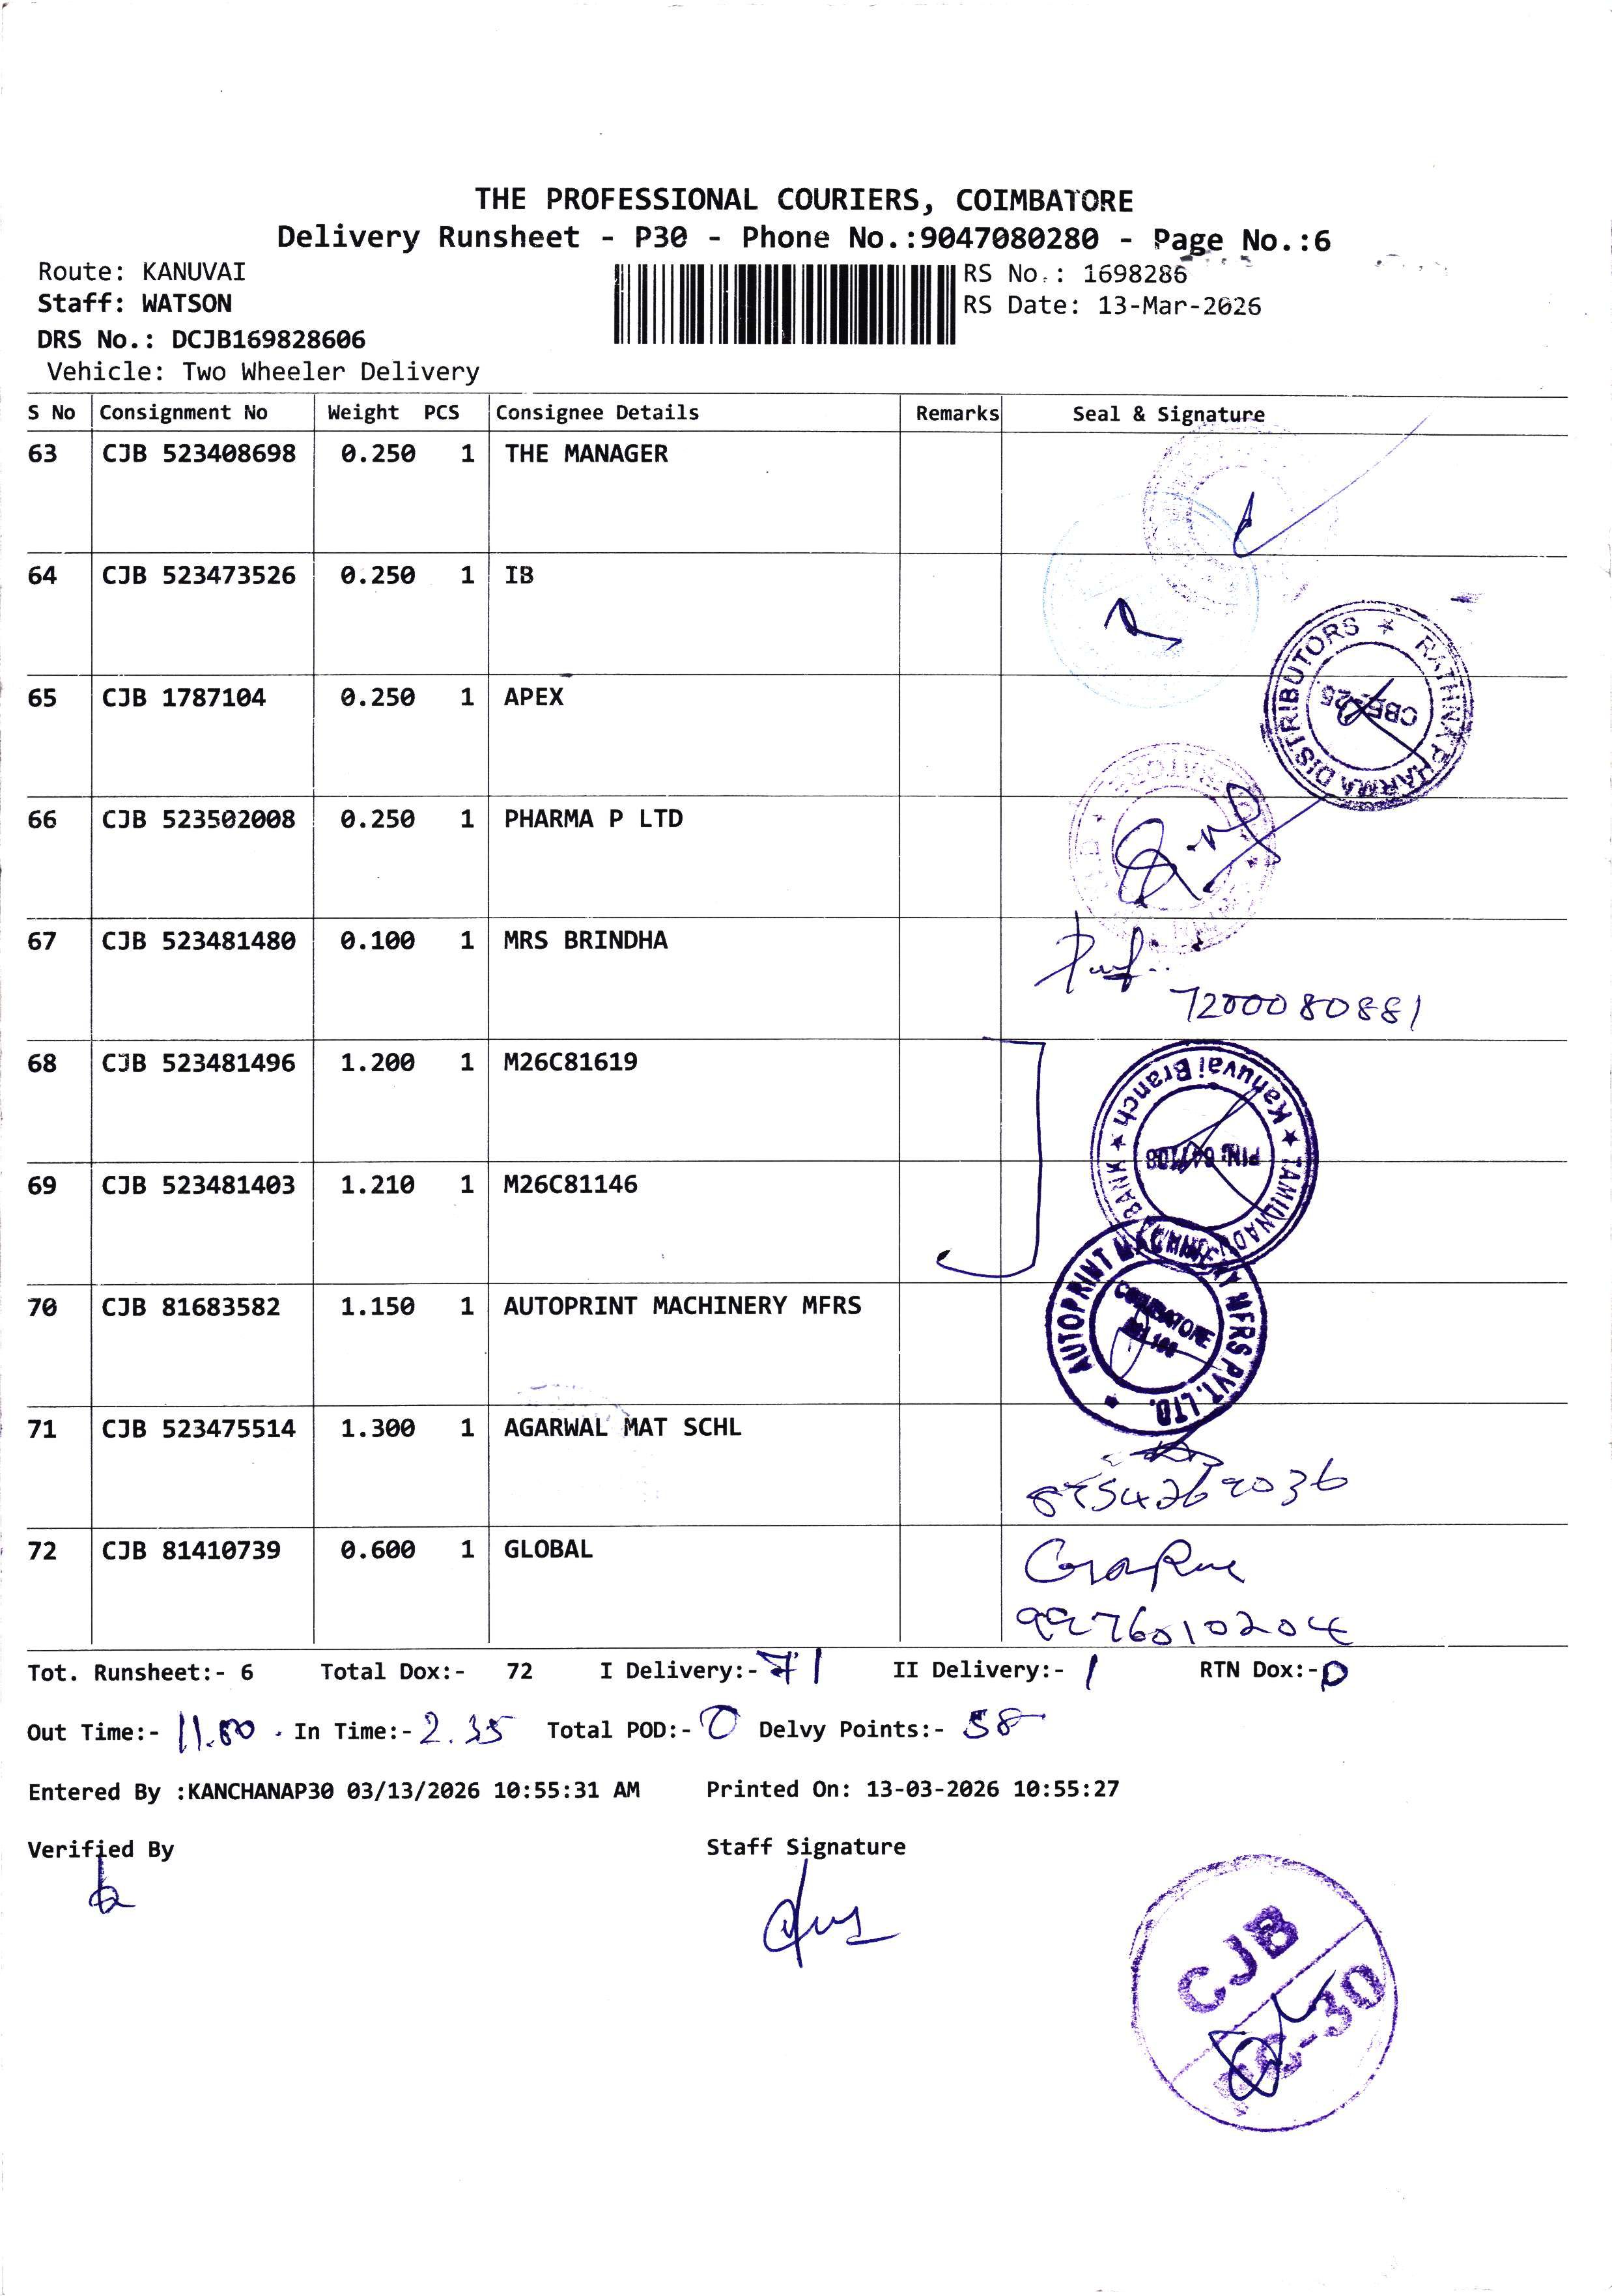 THE PROFESSIONAL COURIERS, COIMBATORE
Delivery Runsheet - P30 - Phone No.:9047080280 - Page No.:6
Route: KANUVAI
RS No.: 1698286
Staff: WATSON
RS Date: 13-Mar-2026
DRS No.: DCJB169828606
Vehicle: Two Wheeler Delivery
S No Consignment No Weight PCS Consignee Details Remarks Seal & Signature
63 CJB 523408698 0.250 1 THE MANAGER
64 CJB 523473526 0.250 1 IB
RATHNA PHARMA DISTRIBUTORS
CBE-25
65 CJB 1787104 0.250 1 APEX
66 CJB 523502008 0.250 1 PHARMA P LTD
67 CJB 523481480 0.100 1 MRS BRINDHA
7200080881
68 CJB 523481496 1.200 1 M26C81619
Kanuvai Branch ★ TAMILNADU BANK ★
69 CJB 523481403 1.210 1 M26C81146
70 CJB 81683582 1.150 1 AUTOPRINT MACHINERY MFRS
AUTOPRINT MACHINERY MFRS PVT. LTD.
COIMBATORE
71 CJB 523475514 1.300 1 AGARWAL MAT SCHL
72 CJB 81410739 0.600 1 GLOBAL
Tot. Runsheet:- 6 Total Dox:- 72 I Delivery:- 71 II Delivery:- 1 RTN Dox:- 0
Out Time:- 11.50 In Time:- 2.35 Total POD:- 0 Delvy Points:- 58
Entered By :KANCHANAP30 03/13/2026 10:55:31 AM Printed On: 13-03-2026 10:55:27
Verified By Staff Signature
CJB
-30